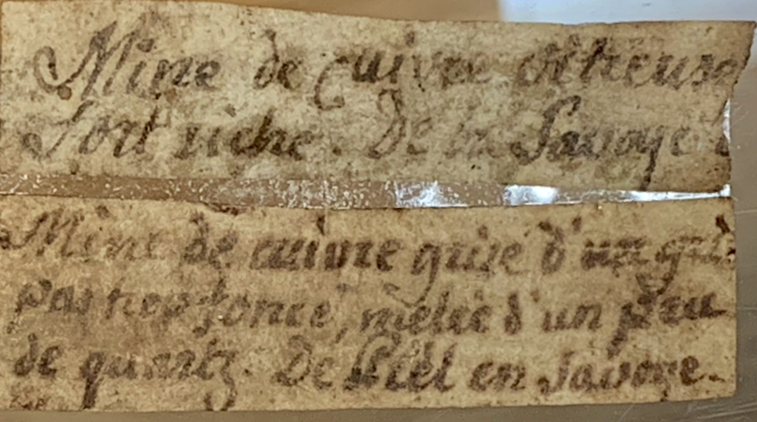 Mine de Cuivre vitreuse
fort riche. De la Savoye
Mine de cuivre grise d'un gris
pas trop foncé, mêlée d'un peu
de quartz. De en Savoye.